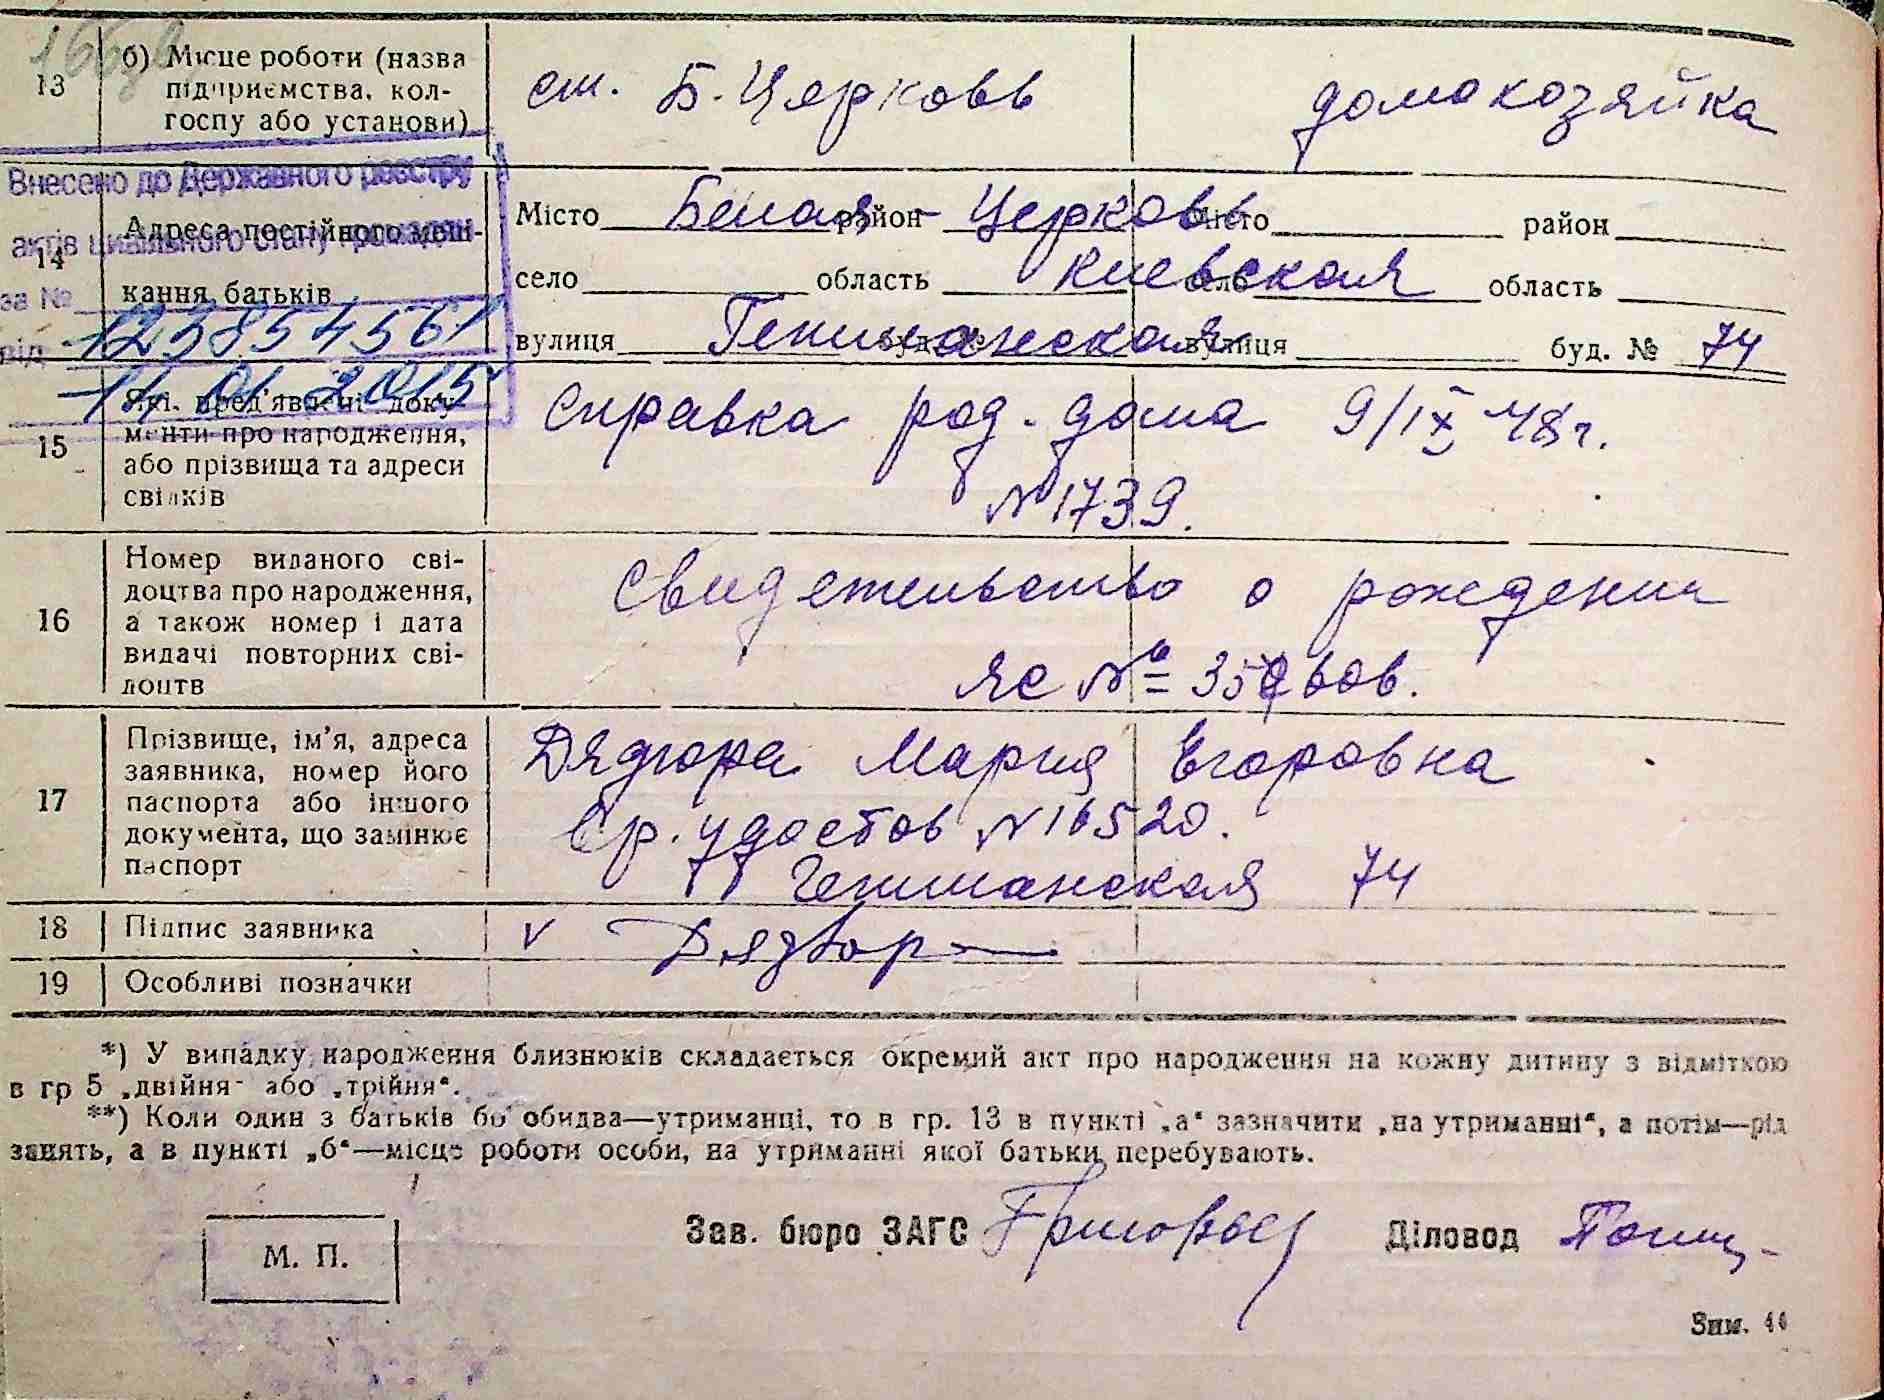 13
б) Місце роботи (назва
підприємства, кол-
госпу або установи)
ст. Б. Церковь
домохозяйка
Внесено до Державного реєстру
актів цивільного стану громадян
за №
12385456
від
14.01.2015
14
Адреса постійного меш-
кання батьків
Місто Белая район Церковь місто район
село область Киевская село область
вулиця Гетманская буд. № вулиця буд. № 74
15
Які пред'явлені доку-
менти про народження,
або прізвища та адреси
свідків
Справка род. дома 9/IX 48 г.
№ 1739.
16
Номер виданого сві-
доцтва про народження,
а також номер і дата
видачі повторних сві-
доцтв
Свидетельство о рождении
ЯС №
17
Прізвище, ім'я, адреса
заявника, номер його
паспорта або іншого
документа, що замінює
паспорт
Дядюра Мария Егоровна
Вр. удостов № 16520.
Гетманская 74
18
Підпис заявника
v Дядюра
19
Особливі позначки
*) У випадку народження близнюків складається окремий акт про народження на кожну дитину з відміткою
в гр 5 „двійня" або „трійня".
**) Коли один з батьків бо обидва—утриманці, то в гр. 13 в пункті „а" зазначити „на утриманні", а потім—рід
занять, а в пункті „б"—місце роботи особи, на утриманні якої батьки перебувають.
М. П.
Зав. бюро ЗАГС
Діловод
Зим. 44